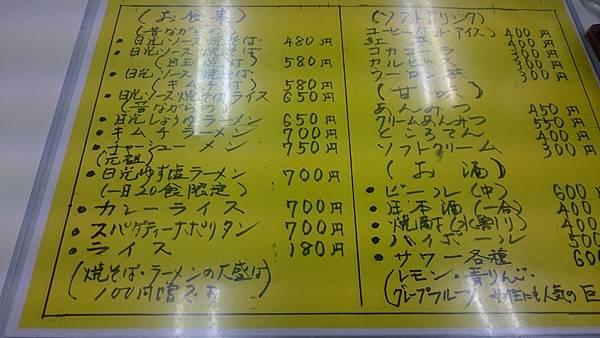 (お食事)
(昔ながらの)
・日光ソース焼そば 480円
・日光ソース焼そば 580円
(目玉焼付)
・日光ソース焼そば
キムチ付) 580円
・日光ソース焼そばライス 650円
(昔ながらの)
・日光しょうゆラーメン 650円
・キムチラーメン 700円
・チャーシューメン 750円
(元祖)
・日光ゆず塩ラーメン 700円
(一日20食限定)
・カレーライス 700円
・スパゲティーナポリタン 700円
・ライス 180円
(焼そば・ラーメンの大盛は
100円増です)
(ソフトドリンク)
コーヒー(ホット・アイス) 400円
紅茶 400円
コカコーラ 300円
カルピス 300円
ウーロン茶 300円
(甘味)
あんみつ 450円
クリームあんみつ 550円
ところてん 400円
ソフトクリーム 300円
(お酒)
・ビール(中) 600
・日本酒(一合) 400
・焼酎(水割り) 400
・ハイボール 500
・サワー各種 600
(レモン・青りんご・
グレープフルーツ 女性にも人気の巨